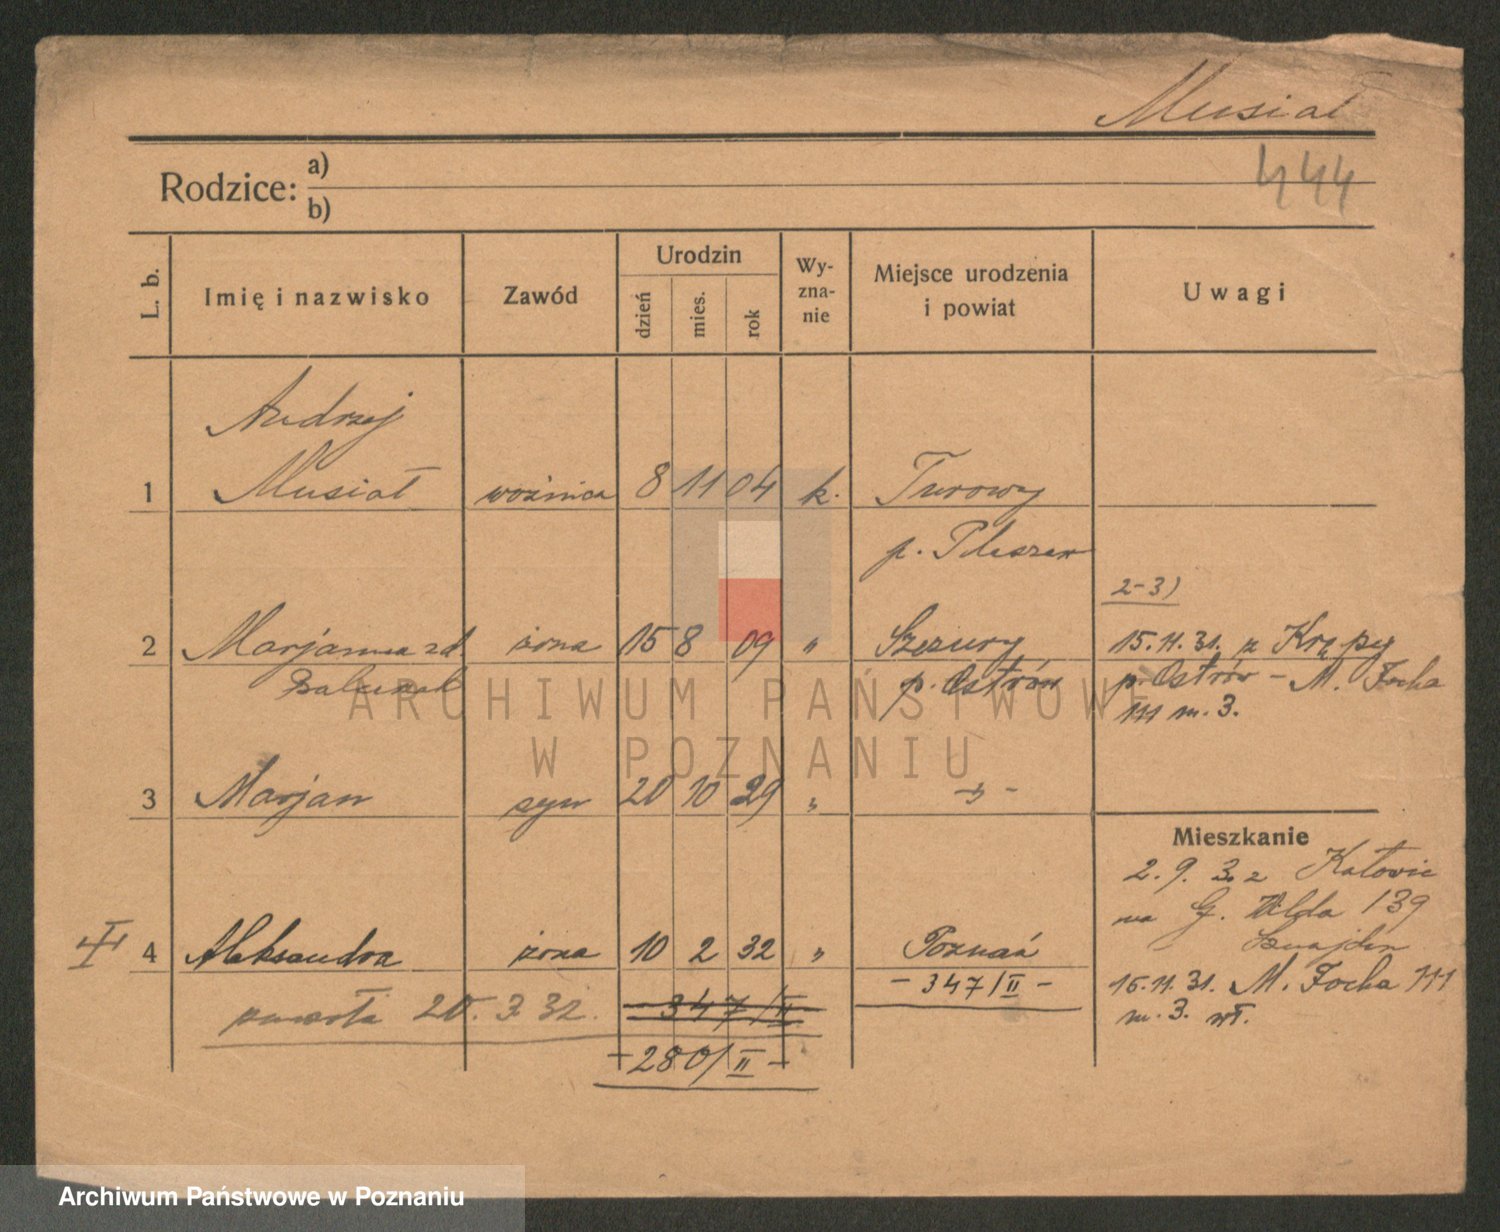 Musiał
444
Rodzice: a)
b)
L. b.
Imię i nazwisko
Zawód
Urodzin
dzień
mies.
rok
Wy-
zna-
nie
Miejsce urodzenia
i powiat
Uwagi
Andrzej
1 Musiał woźnica 8 11 04 k. Turowy
p. Pleszew
2-3)
2 Marjanna zd żona 15 8 09 " Szczury 15.11.31. z Krępy
p. Ostrów p. Ostrów - M. Focha
111 m. 3.
3 Marjan syn 20 10 29 " -"-
Mieszkanie
2. 9. 3. z Katowic
na G. Wilda 139
4 Aleksandra żona 10 2 32 " Poznań
- 347/II - 16.11.31. M. Focha 111
zmarła 20. 3 32. - 347/II m. 3. wł.
- 280/II -
ARCHIWUM PAŃSTWOWE
W POZNANIU
Archiwum Państwowe w Poznaniu